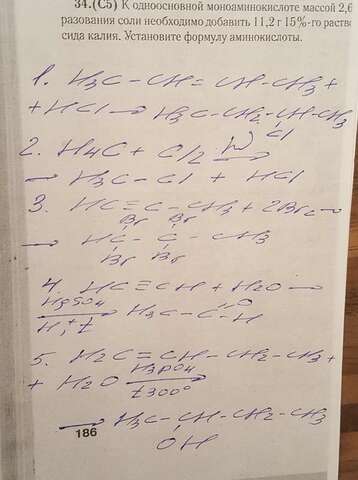 34.(С5) К одноосновной моноаминокислоте массой 2,6
разования соли необходимо добавить 11,2 г 15%-го раство
сида калия. Установите формулу аминокислоты.
1. H3C - CH = CH - CH3 +
+ HCl → H3C - CH2 - CH - CH3
Cl
2. H4C + Cl2 hν →
→ H3C - Cl + HCl
3. HC ≡ C - CH3 + 2Br2 →
Br Br
→ HC - C - CH3
Br Br
4. HC ≡ CH + H2O →
HgSO4
H+, t → H3C - C - H
O
5. H2C = CH - CH2 - CH3 +
+ H2O H3PO4 →
t 300°
→ H3C - CH - CH2 - CH3
OH
186